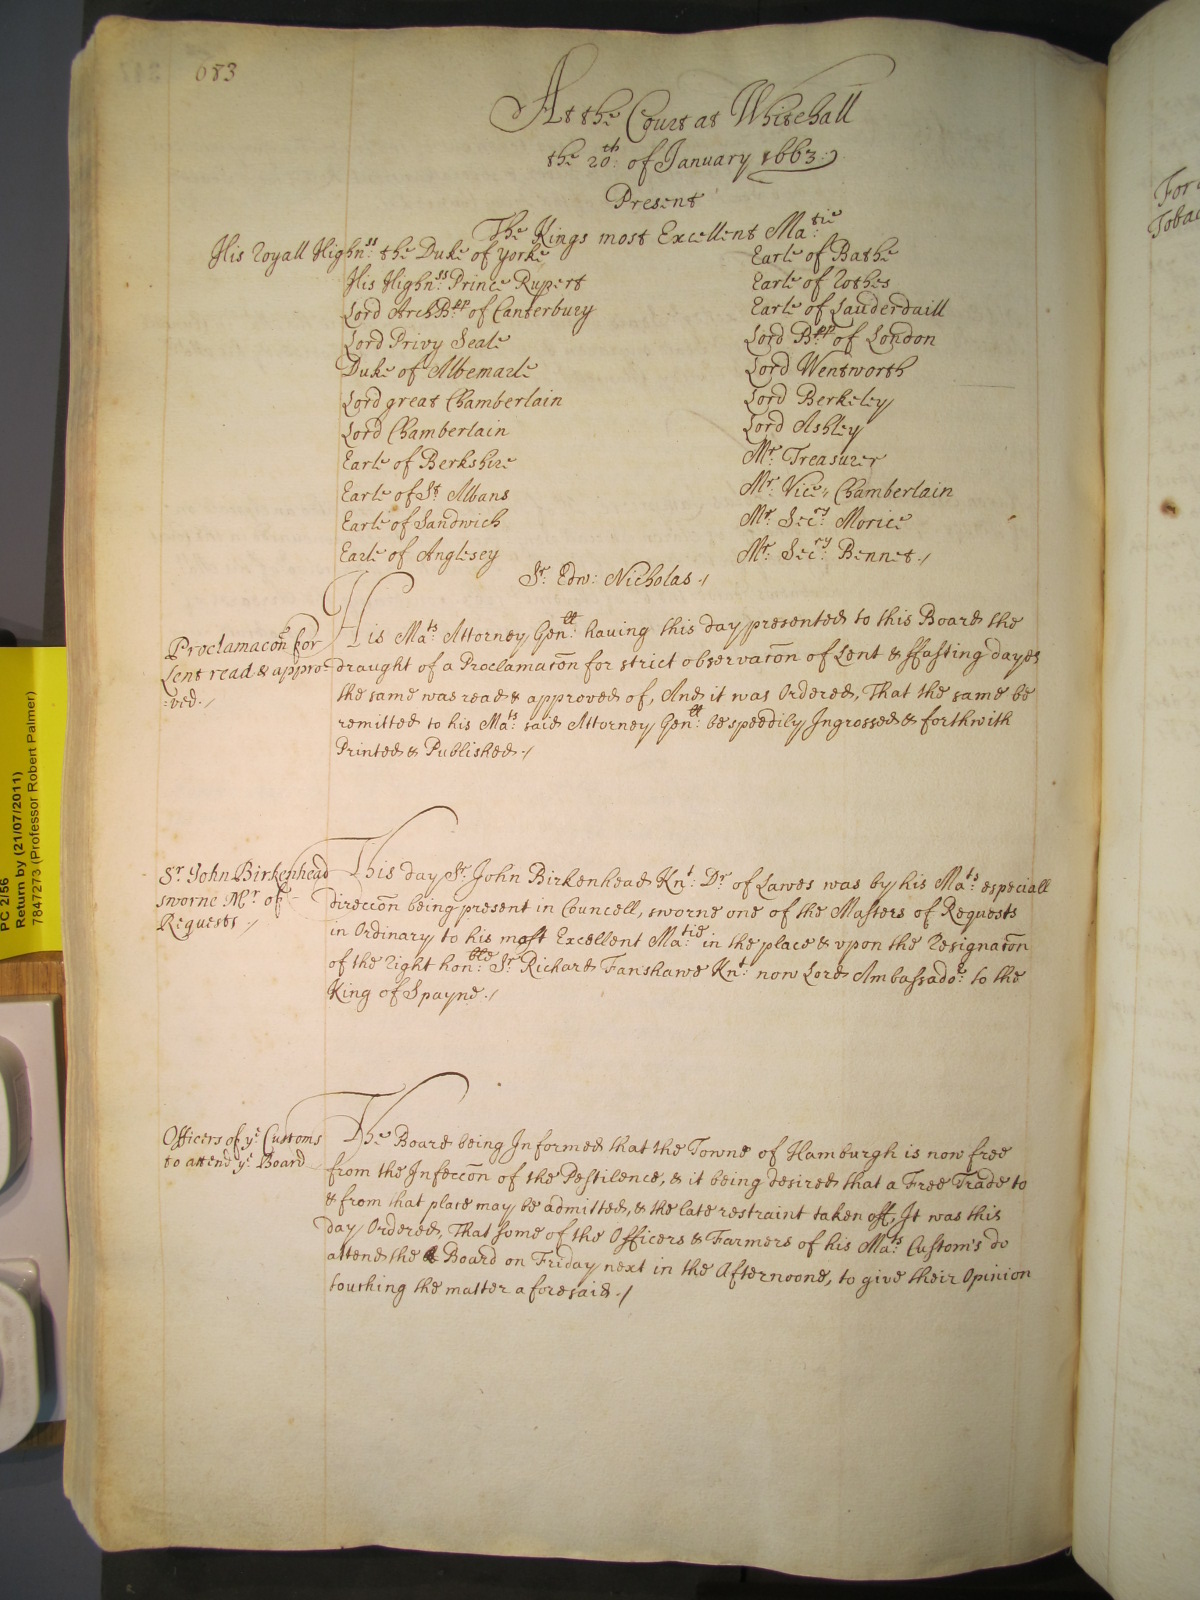 683
At the Court at Whitehall
the 20th: of January 1663.
Present
The Kings most Excellent Ma:tie
His Royall Highn:ss the Duke of Yorke
His Highn:ss Prince Rupert
Lord ArchB:pp of Canterbury
Lord Privy Seale
Duke of Albemarle
Lord great Chamberlain
Lord Chamberlain
Earle of Berkshire
Earle of St Albans
Earle of Sandwich
Earle of Anglesey
Earle of Bathe
Earle of Rothes
Earle of Lauderdaill
Lord B:pp of London
Lord Wentworth
Lord Berkeley
Lord Ashley
Mr: Treasurer
Mr: Vice: Chamberlain
Mr: Sec:ry Morice
Mr: Sec:ry Bennet./
Sr: Edw: Nicholas./
Proclamacõn for
Lent read & appro-
:ved./
His Ma:ts Attorney Gen:ll having this day presented to this Board the
draught of a Proclamacõn for strict observacõn of Lent & ffasting dayes
the same was read & approved of, And it was Ordered, That the same be
remitted to his Ma:ts said Attorney Gen:ll be speedily Ingrossed & forthwith
Printed & Published./
Sr. John Birkenhead
sworne Mr. of
Requests./
This day Sr. John Birkenhead Knt: Dr. of Lawes was by his Ma:ts especiall
direccõn being present in Councell, sworne one of the Masters of Requests
in Ordinary to his most Excellent Ma:tie in the place & vpon the Resignacõn
of the right hon:ble Sr. Richard Fanshawe Knt: now Lord Ambassado:r to the
King of Spayne./
Officers of ye Customs
to attend ye Board
The Board being Informed that the Towne of Hamburgh is now free
from the Infeccõn of the Pestilence, & it being desired that a Free Trade to
& from that place may be admitted, & the late restraint taken off, It was this
day Ordered, That some of the Officers & Farmers of his Ma:ts Custom's do
attend the Board on Friday next in the Afternoone, to give their Opinion
touching the matter aforesaid./
PC 2/56
Return by (21/07/2011)
7847273 (Professor Robert Palmer)